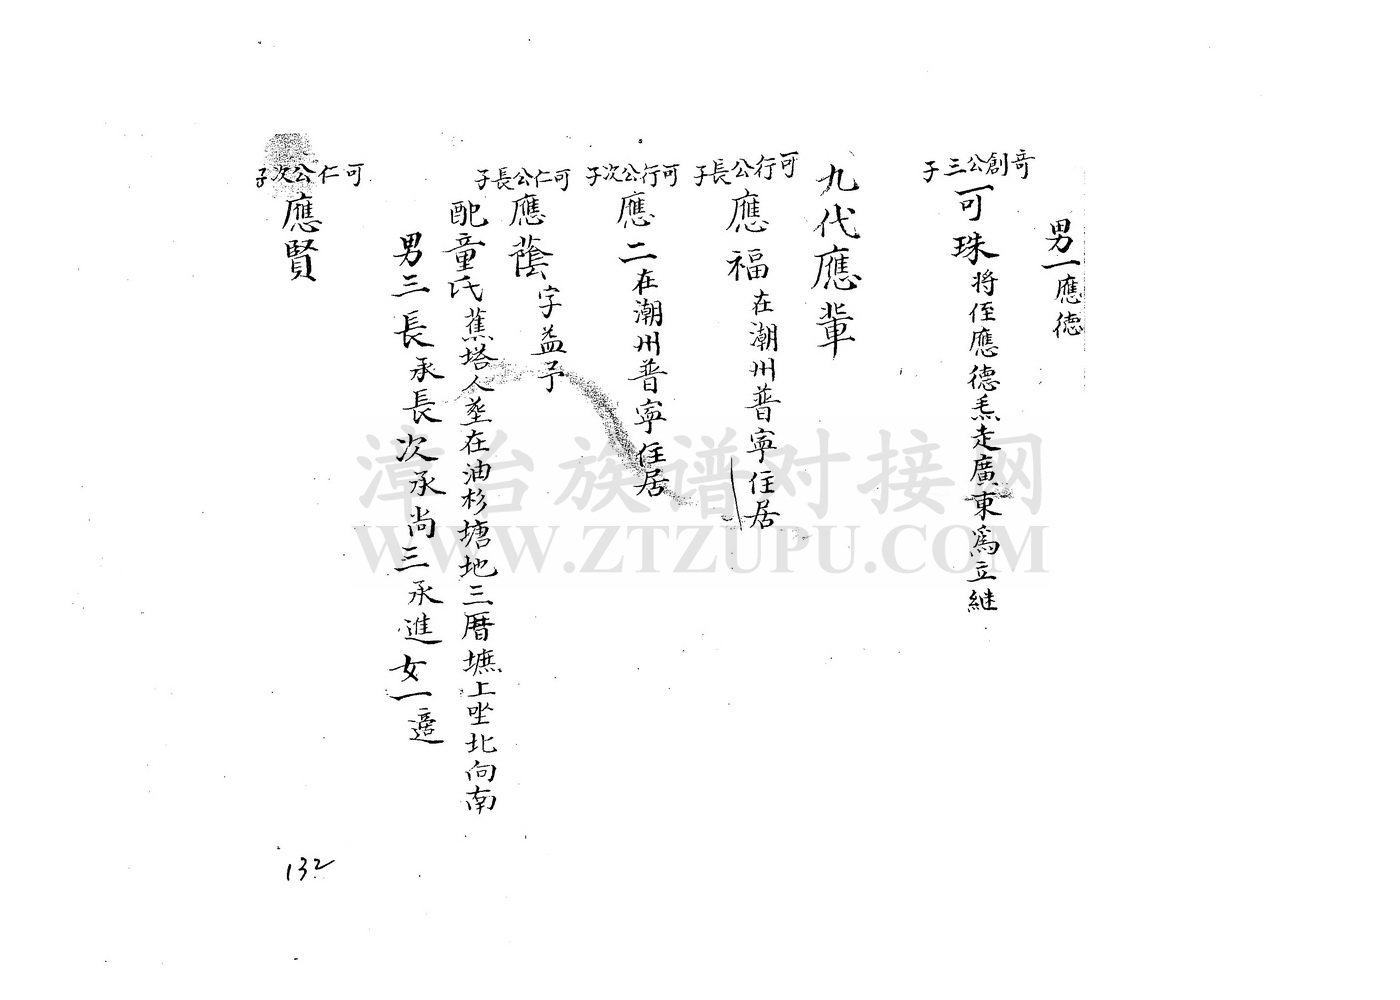 男一應德
竒創公三子
可珠將侄應德𢖍走廣東爲立継
九代應輩
可行公長子
應福在潮州普寧住居
可行公次子
應二在潮州普寧住居
可仁公長子
應蔭字益予
配童氏蕉塔人塟在油杉塘地三曆墲上坐北向南
男三長承長次承尚三承進女一適
可仁公次子
應賢
132
漳台族谱对接网
WWW.ZTZUPU.COM